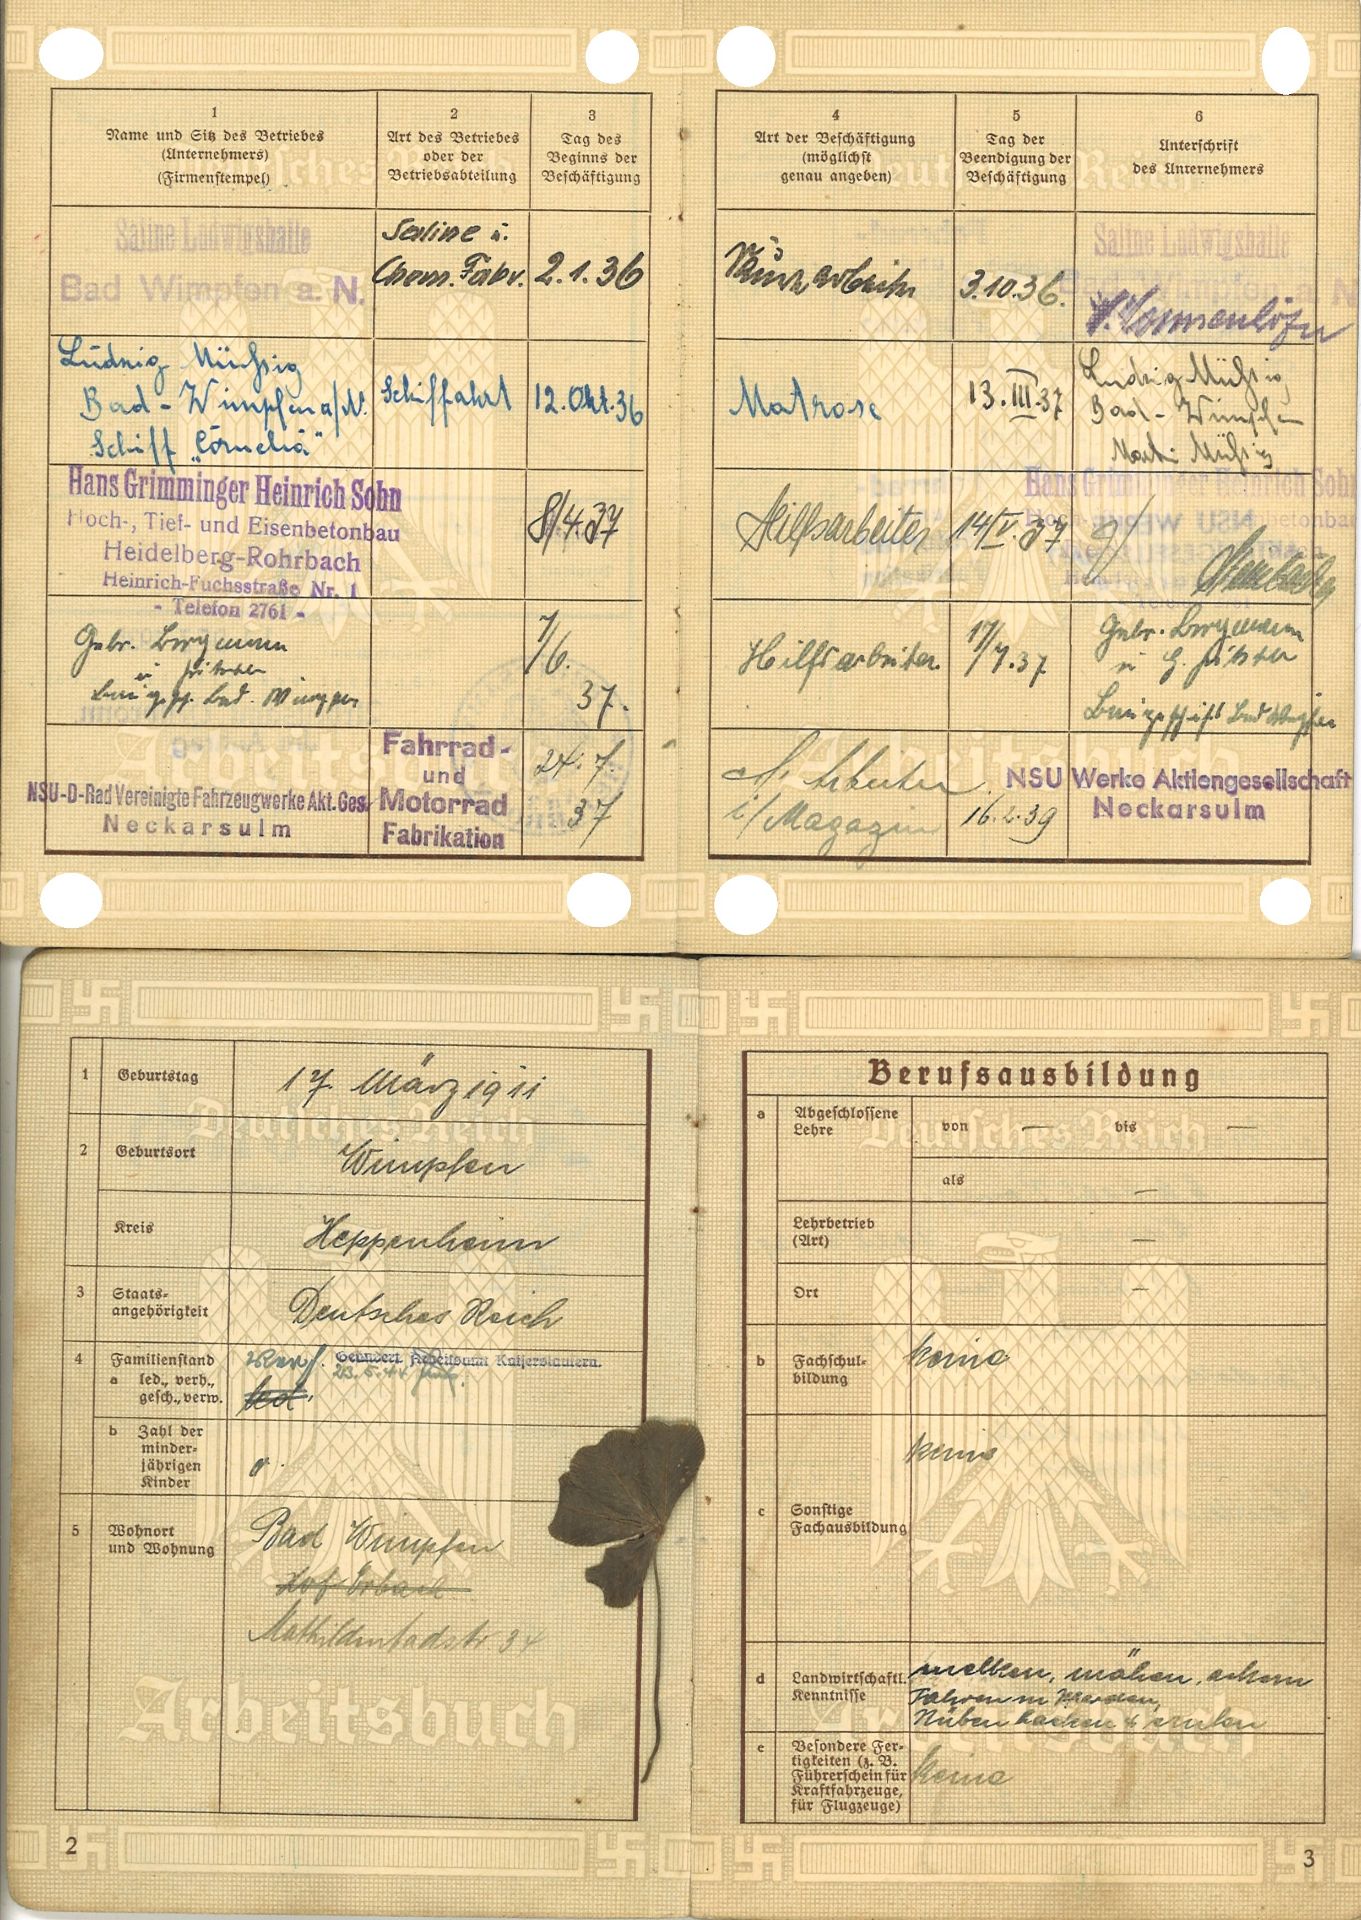 1
Name und Sitz des Betriebes
(Unternehmers)
(Firmenstempel)
2
Art des Betriebes
oder der
Betriebsabteilung
3
Tag des
Beginns der
Beschäftigung
4
Art der Beschäftigung
(möglichst
genau angeben)
5
Tag der
Beendigung der
Beschäftigung
6
Unterschrift
des Unternehmers
Saline Ludwigshalle
Bad Wimpfen a. N.
Saline u.
Chem. Fabr.
2.1.36
3.10.36.
Saline Ludwigshalle
Bad Wimpfen a. N.
Ludwig Müßig
Bad-Wimpfen a/N.
Schiff "Cornelia"
Schiffahrt
12.Okt.36
Matrose
13.III.37
Ludwig Müßig
Bad-Wimpfen
Müßig
Hans Grimminger Heinrich Sohn
Hoch-, Tief- und Eisenbetonbau
Heidelberg-Rohrbach
Heinrich-Fuchsstraße Nr. 1
- Telefon 2761 -
8/4.37
Hilfsarbeiter
14/V.37
Hans Grimminger Heinrich Sohn
Gebr. Bergmann
u.
Baugesch. Bad. Wimpfen
7/6.
37.
Hilfsarbeiter.
17/7.37
Gebr. Bergmann
u
Baugeschäft Bad Wimpfen
NSU-D-Rad Vereinigte Fahrzeugwerke Akt. Ges.
Neckarsulm
Fahrrad-
und
Motorrad
Fabrikation
24.7.
37
Arbeiter
i/Magazin
16.2.39
NSU Werke Aktiengesellschaft
Neckarsulm
Deutsches Reich
Arbeitsbuch
1 Geburtstag 17. März 1911
2 Geburtsort Wimpfen
Kreis Heppenheim
3 Staats-
angehörigkeit Deutsches Reich
4 Familienstand
a led., verh.,
gesch., verw.
verh. Geändert Arbeitsamt Kaiserslautern.
23.5.44
led.
b Zahl der
minder-
jährigen
Kinder
0
5 Wohnort
und Wohnung
Bad Wimpfen
Hof Erbach
Mathildenbadstr 34
2
Berufsausbildung
a Abgeschlossene
Lehre
von — bis —
als —
Lehrbetrieb
(Art) —
Ort —
b Fachschul-
bildung
keine
c Sonstige
Fachausbildung
keine
d Landwirtschaftl.
Kenntnisse
melken, mähen, ackern
Fahren m Pferden,
Rüben hacken
e Besondere Fer-
tigkeiten (z. B.
Führerschein für
Kraftfahrzeuge,
für Flugzeuge)
keine
3